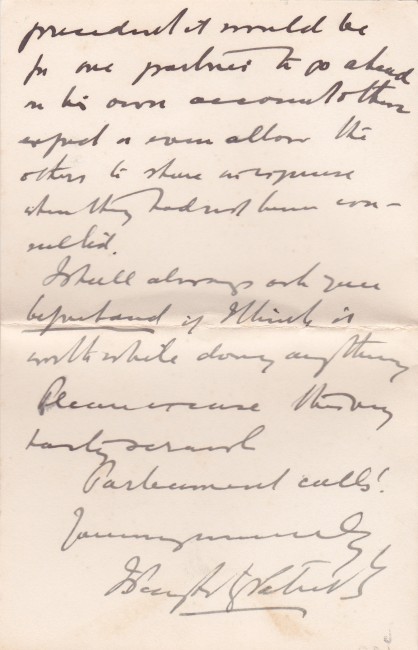 precedent it would be
for one partner to go ahead
on his own account & then
expect or even allow the
others to share in expense
when they had not been con-
sulted.
I shall always ask you
beforehand if I think it
worth while doing anything
Please excuse this very
hasty scrawl
Parliament calls!
Yours sincerely